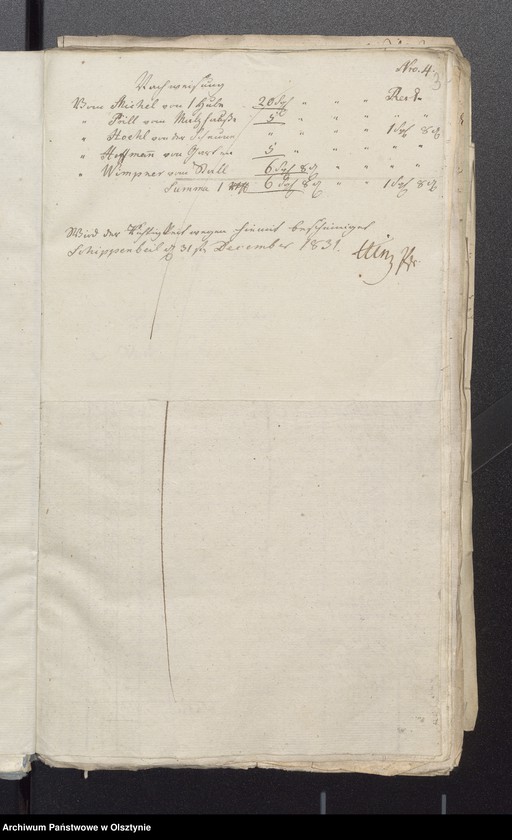 Nro. 4.
3
Nachweisung
Vom Michel von 1 Hube 20 Sgl " " " Rest
" Prill vom 5 " " " " "
" von der Scheune " " " " 1 Sgl 8 d
" Hoffmann von Garten 5 " " " " "
" Wimpner vom Stall 6 Sgl 8 d " " " "
Summa 1 6 Sgl 8 d " " 1 Sgl 8 d
Wird der Richtigkeit wegen hiemit bescheiniget
Schippenbeil d 31 December 1831.
Archiwum Państwowe w Olsztynie